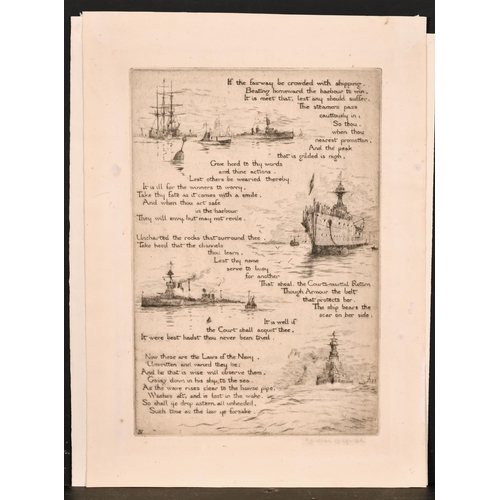 If the fairway be crowded with shipping,
Beating homeward the harbour to win,
It is meet that, lest any should suffer,
The steamers pass
cautiously in;
So thou,
when thou
nearest promotion,
And the peak
that is gilded is nigh,
Give heed to thy words
and thine actions,
Lest others be wearied thereby.
It is ill for the winners to worry,
Take thy fate as it comes with a smile,
And when thou art safe
in the harbour
They will envy, but may not revile.
Uncharted the rocks that surround thee,
Take heed that the channels
thou learn,
Lest thy name
serve to buoy
for another
That shoal, the Courts-martial Return
Though Armour the belt
that protects her,
The ship bears the
scar on her side;
It is well if
the Court shall acquit thee,
It were best hadst thou never been tried.
Now these are the Laws of the Navy,
Unwritten and varied they be;
And he that is wise will observe them,
Going down in his ship to the sea.
As the wave rises clear to the hawse pipe,
Washes aft, and is lost in the wake,
So shall ye drop astern, all unheeded,
Such time as the law ye forsake.